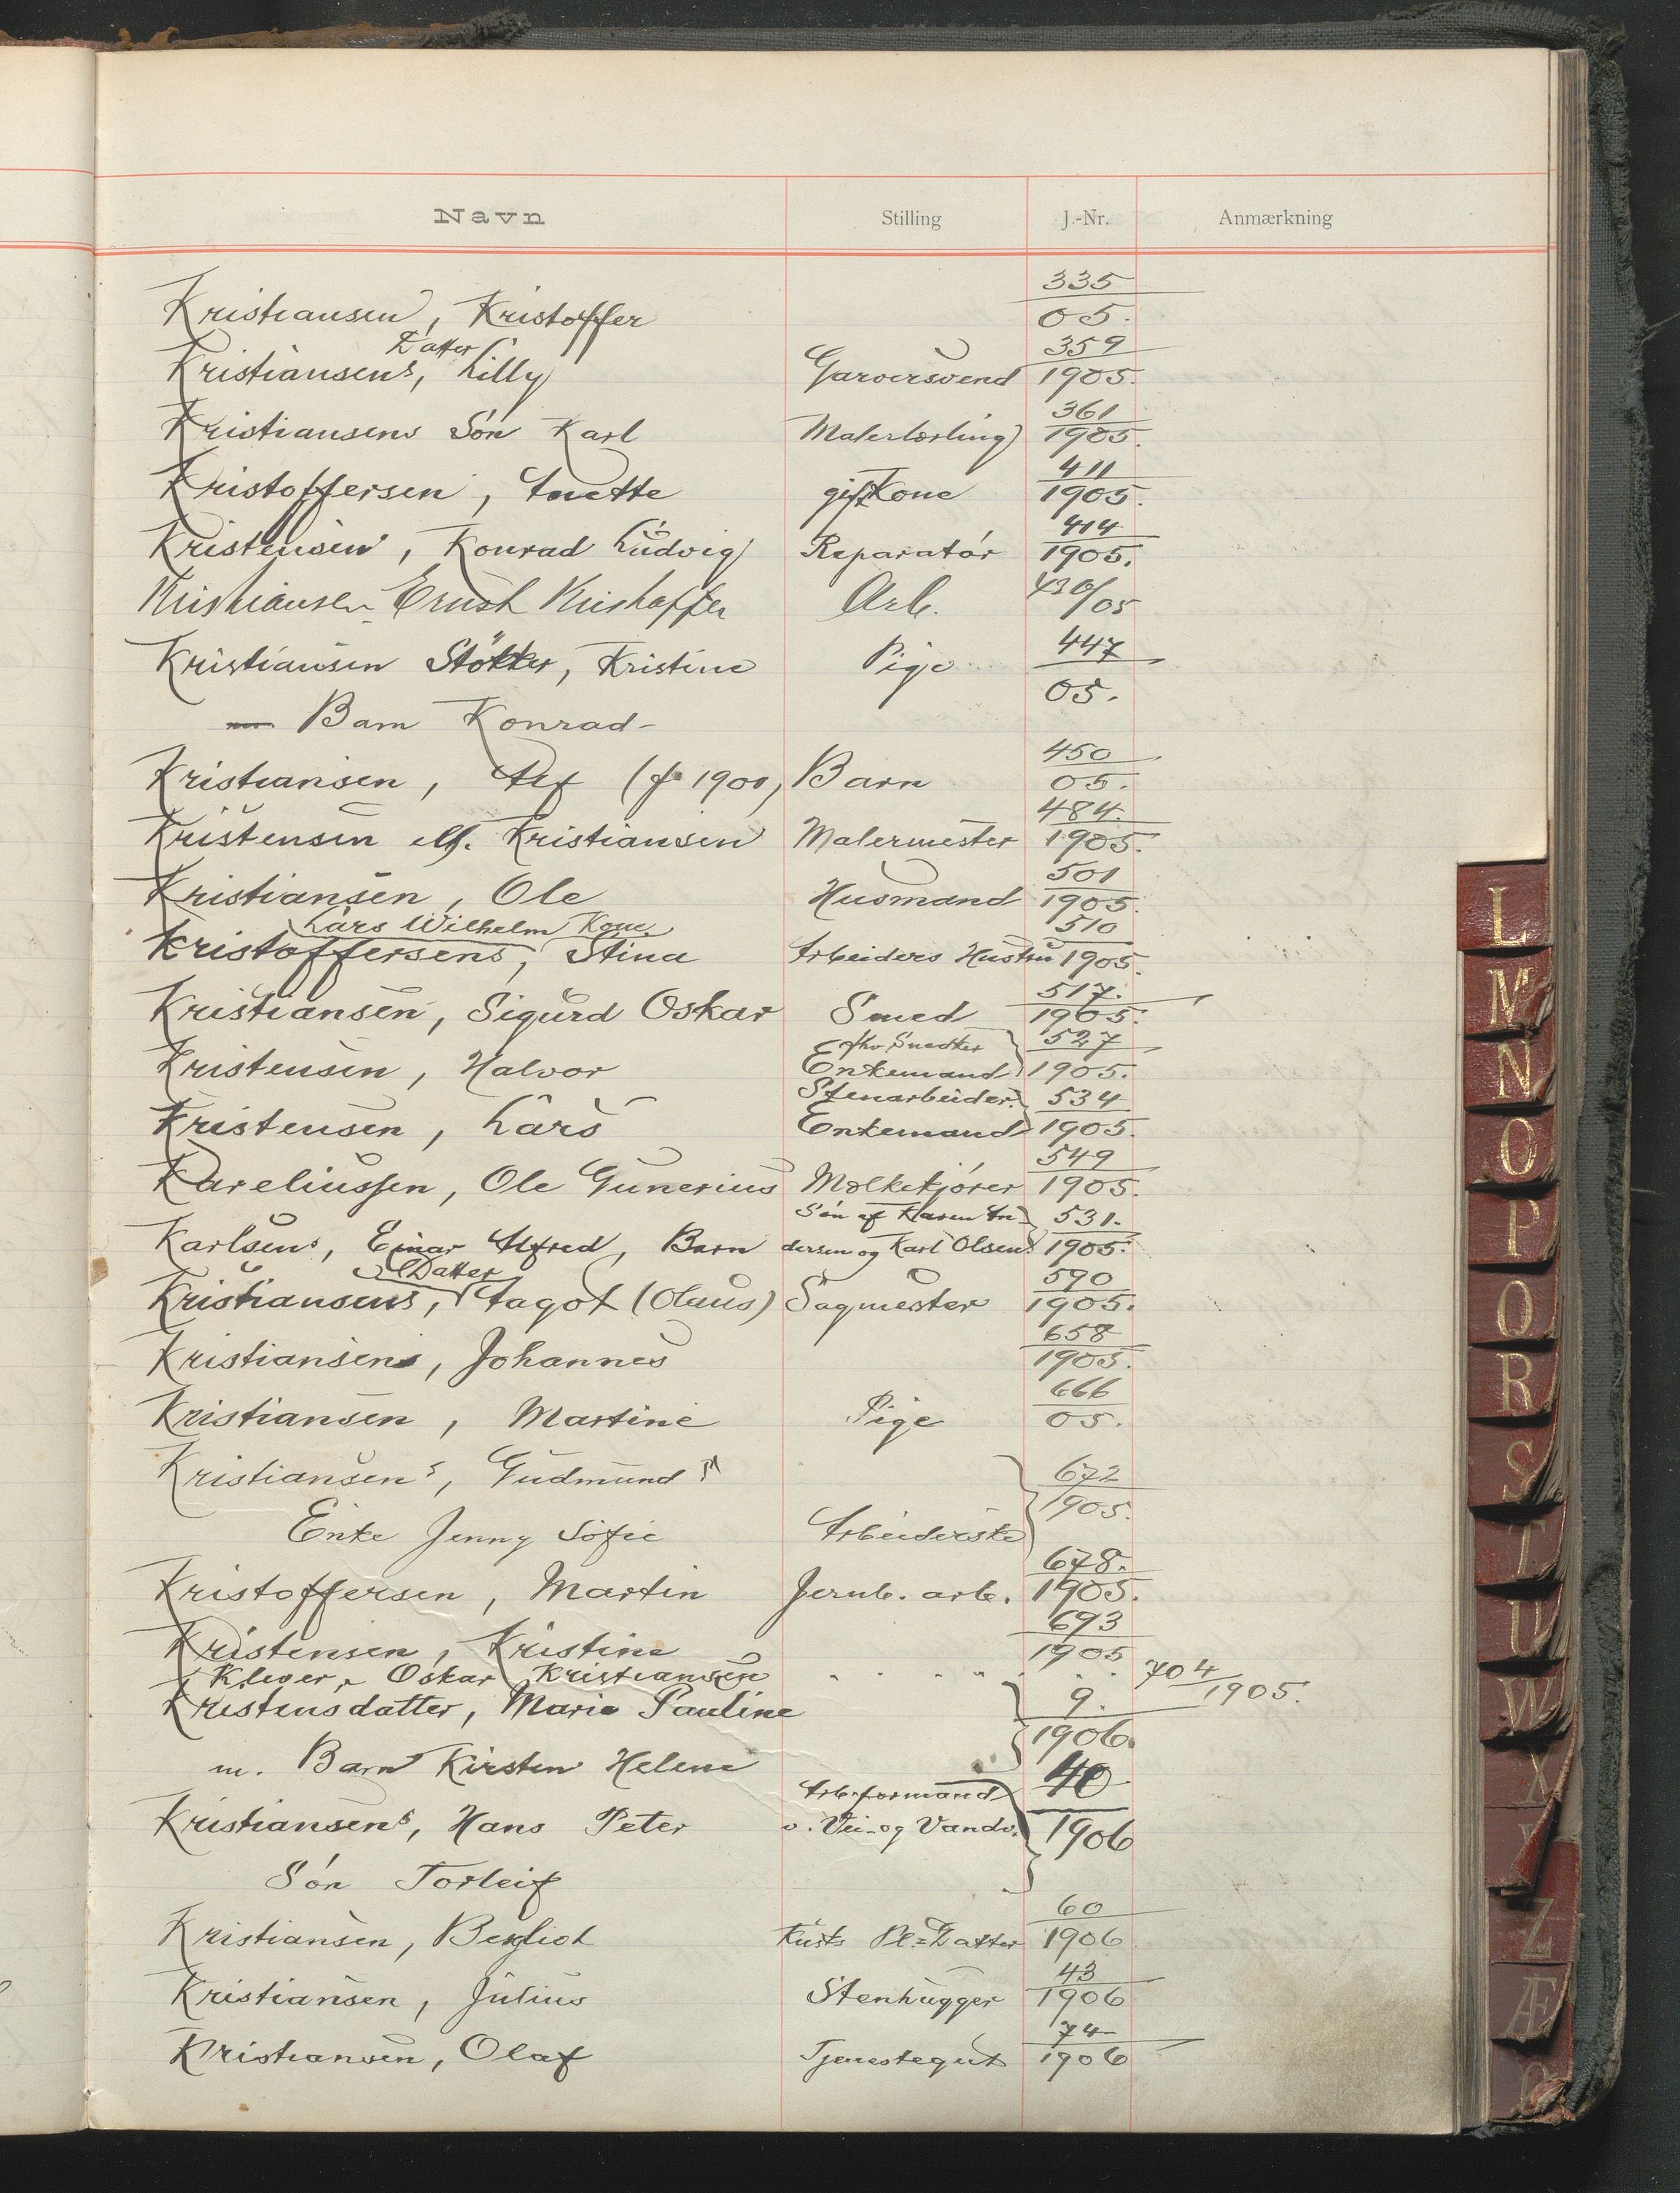 Navn Stilling J.-Nr. Anmærkning
335
Kristiansen, Kristoffer 05.
Datter 359
Kristiansens, Lilly Garversvend 1905.
361
Kristiansens Søn Karl Malerlærling 1905.
411
Kristoffersen, Anette gift Kone 1905.
414
Kristensen, Konrad Ludvig Reparatør 1905.
Kristiansen Ernst Kristoffer Arb. 430/05
447
Kristiansen Støtter, Kristine Pige 05.
— Barn Konrad
450
Kristiansen, Alf (f. 1900) Barn 05.
484.
Kristensen ell. Kristiansen Malermester 1905.
501
Kristiansen, Ole Husmand 1905.
Lars Wilhelm Kone 510
Kristoffersens, Stina Arbeiders Hustru 1905.
517.
Kristiansen, Sigurd Oskar Smed 1905.
fhv Snedker 527
Kristensen, Halvor Enkemand 1905.
Stenarbeider. 534
Kristensen, Lars Enkemand 1905.
549
Kareliussen, Ole Gunerius Mælkekjører 1905.
Søn af Karen An- 531.
Karlsens, Einar Alfred, Barn dersen og Karl Olsen 1905.
Datter 590
Kristiansens, Aagot (Olaus) Sagmester 1905.
658
Kristiansens, Johannes 1905.
666
Kristiansen, Martine Pige 05.
Kristiansens, Gudmund's 672
1905.
Enke Jenny Sofie Arbeiderske
678.
Kristoffersen, Martin Jernb. arb. 1905.
693
Kristensen, Kristine 1905
Kleger, Oskar Kristiansen " " " " " " 704
1905.
Kristensdatter, Marie Pauline 9.
1906.
m. Barn Kirsten Helene
Arb.formand 40
Kristiansens, Hans Peter v. Vei- og Vandv. 1906
Søn Torleif
60
Kristiansen, Bergliot Kusts Pl.-Datter 1906
43
Kristiansen, Julius Stenhugger 1906
74
Kristiansen, Olaf Tjenestegut 1906
L
M
N
O
P
Q
R
S
T
U
W
X
Y
Z
Æ
Ø